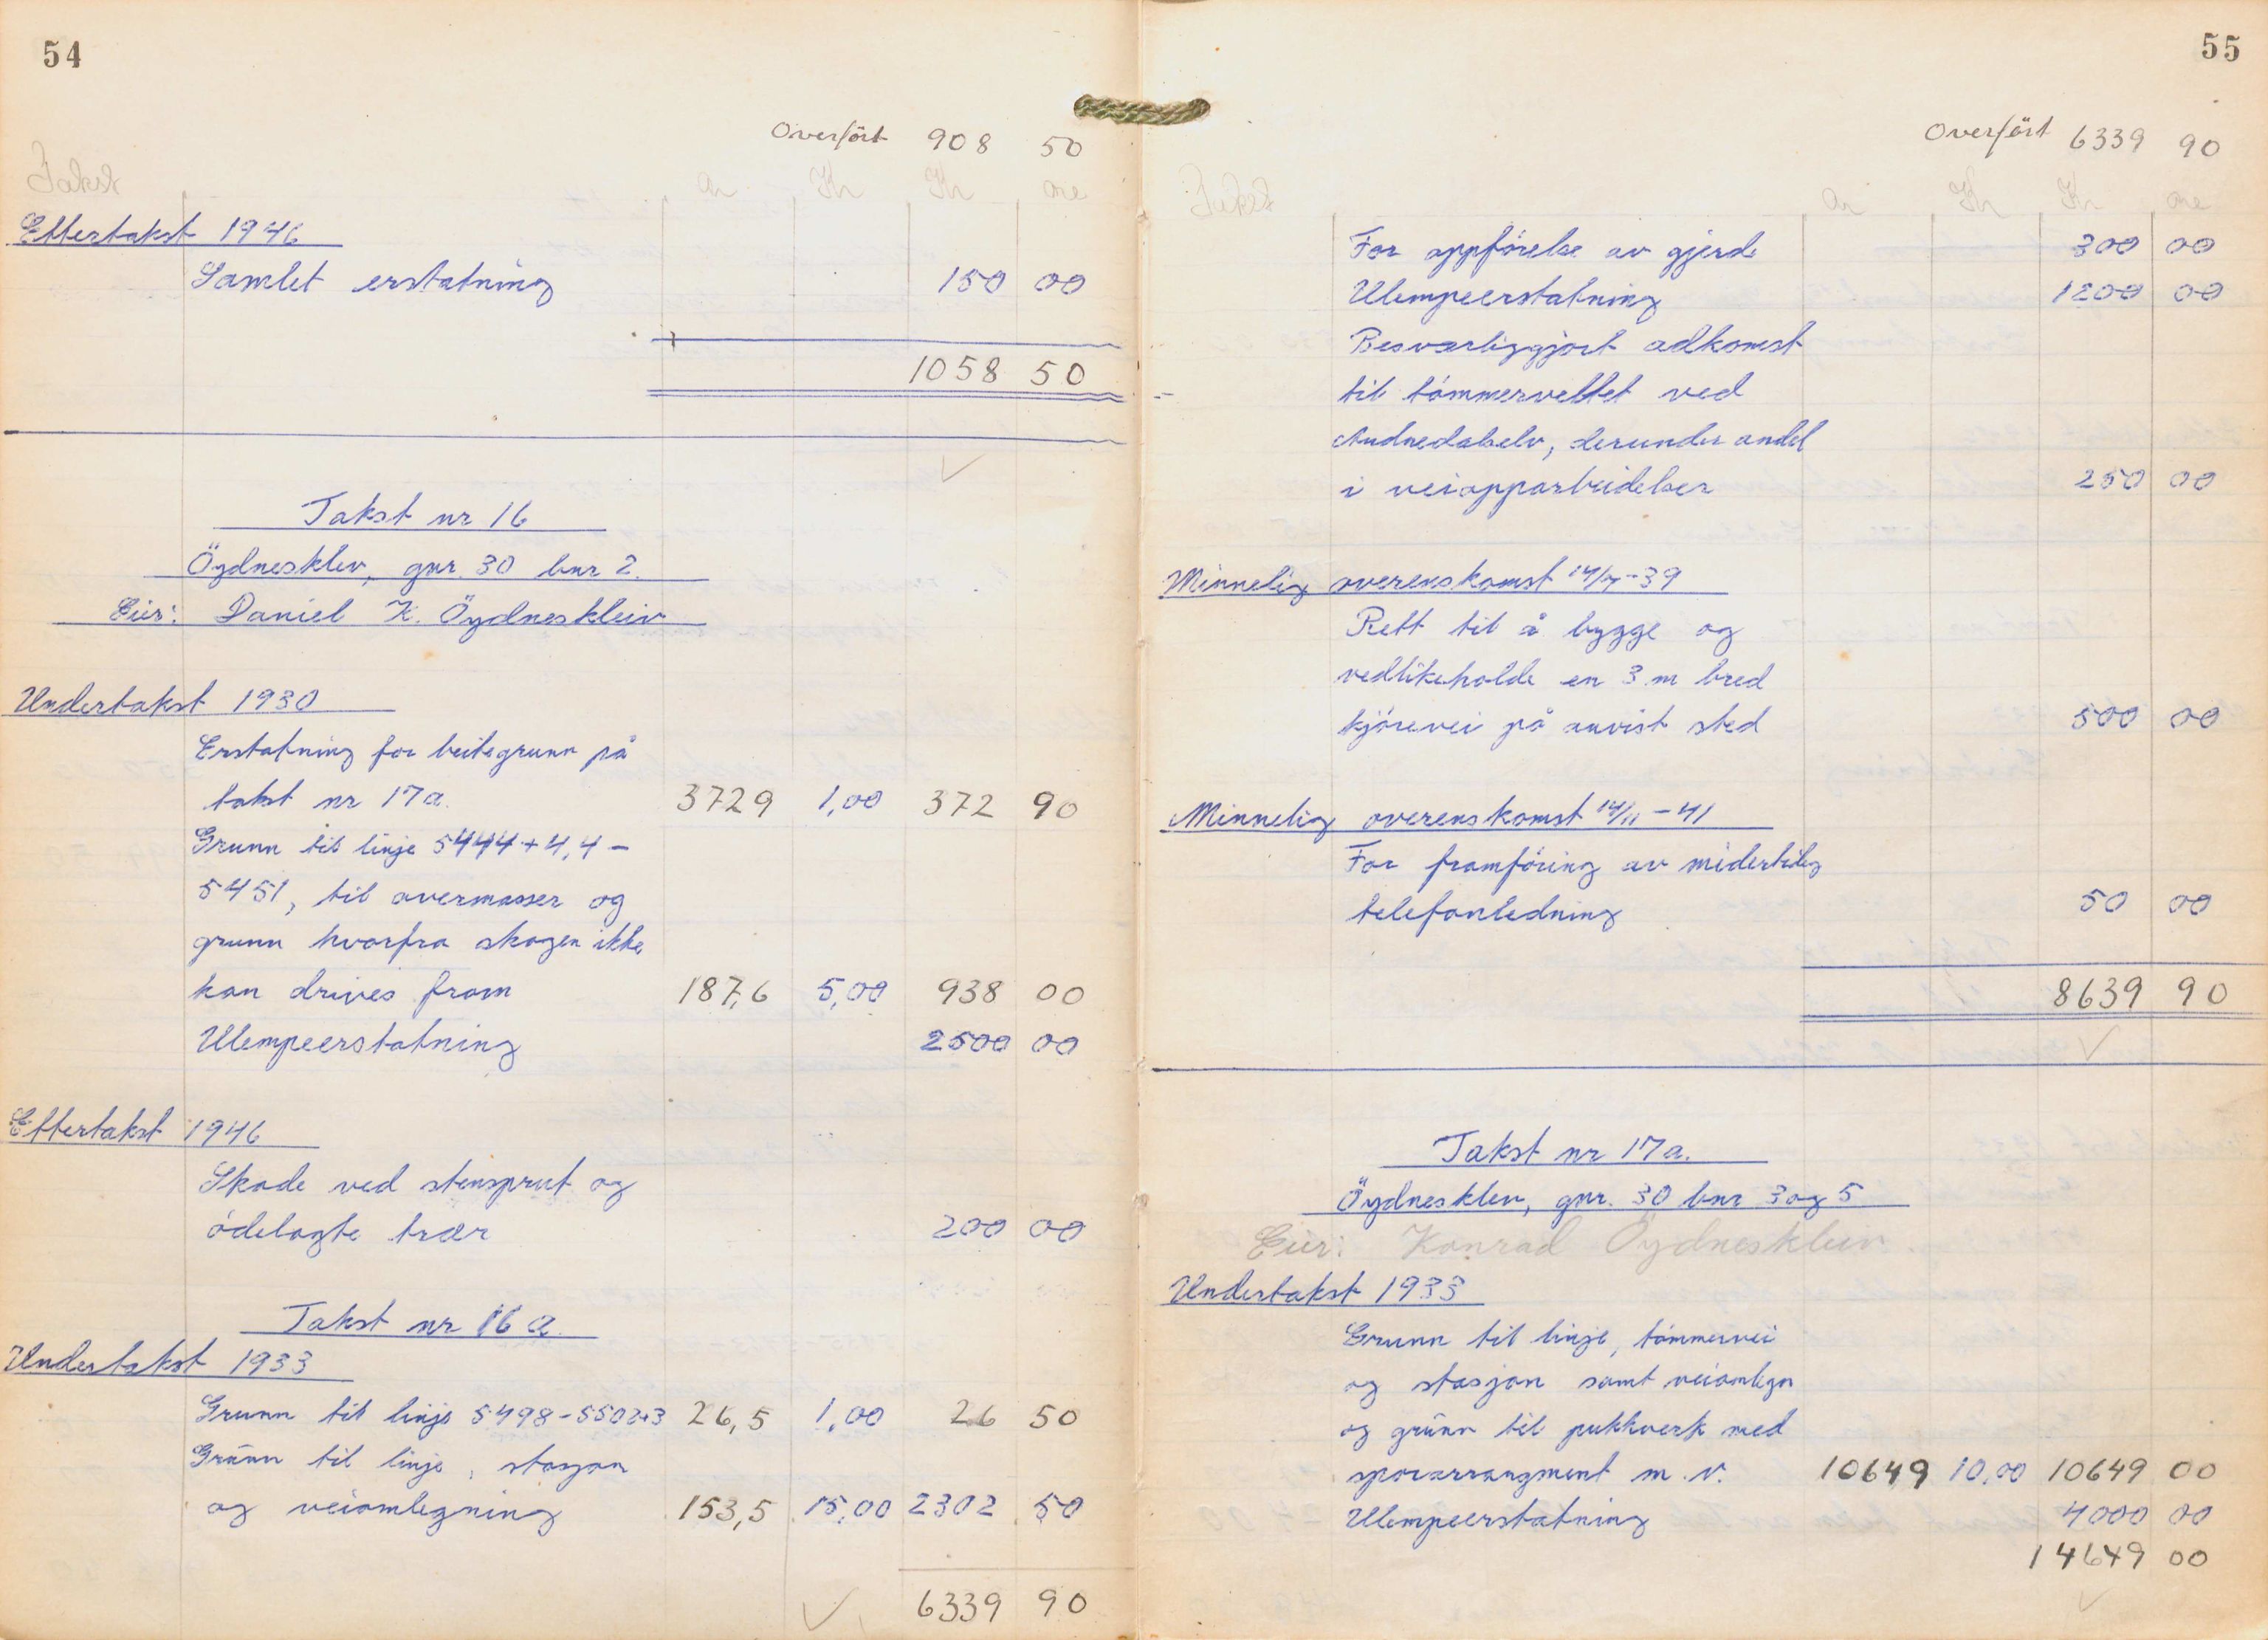 54
Overfört 908 50
Takst ar Kr Kr øre
Ettertakst 1946
Samlet erstatning 150 00
1058 50
Takst nr 16
Öydnesklev, gnr. 30 bnr 2.
Eier: Daniel K. Öydneskleiv
Undertakst 1930
Erstatning for beitegrunn på
takst nr 17a. 3729 1,00 372 90
Grunn til linje 5444+4,4 –
5451, til overmasser og
grunn hvorfra skogen ikke
kan drives fram 187,6 5,00 938 00
Ulempeerstatning 2500 00
Ettertakst 1946
Skade ved stensprut og
ödelagte trær 200 00
Takst nr 16 a.
Undertakst 1933
Grunn til linje 5498-5502+3 26,5 1,00 26 50
Grunn til linje, stasjon
og veiomlegning 153,5 15,00 2302 50
6339 90
55
Overfört 6339 90
Takst ar Kr Kr øre
For oppförelse av gjerde 300 00
Ulempeerstatning 1200 00
Besværliggjort adkomst
til tömmerveltet ved
Audnedalselv, derunder andel
i veiopparbeidelser 250 00
Minnelig overenskomst 14/7-39
Rett til å bygge og
vedlikeholde en 3 m bred
kjörevei på anvist sted 500 00
Minnelig overenskomst 14/11-41
For framföring av midertidig
telefonledning 50 00
8639 90
Takst nr 17a.
Öydnesklev, gnr. 30 bnr 3 og 5
Eier: Konrad Öydneskleiv.
Undertakst 1933
Grunn til linje, tömmervei
og stasjon samt veiomlegn
og grunn til pukkverk med
sporarrangment m.v. 10649 10,00 10649 00
Ulempeerstatning 4000 00
14649 00